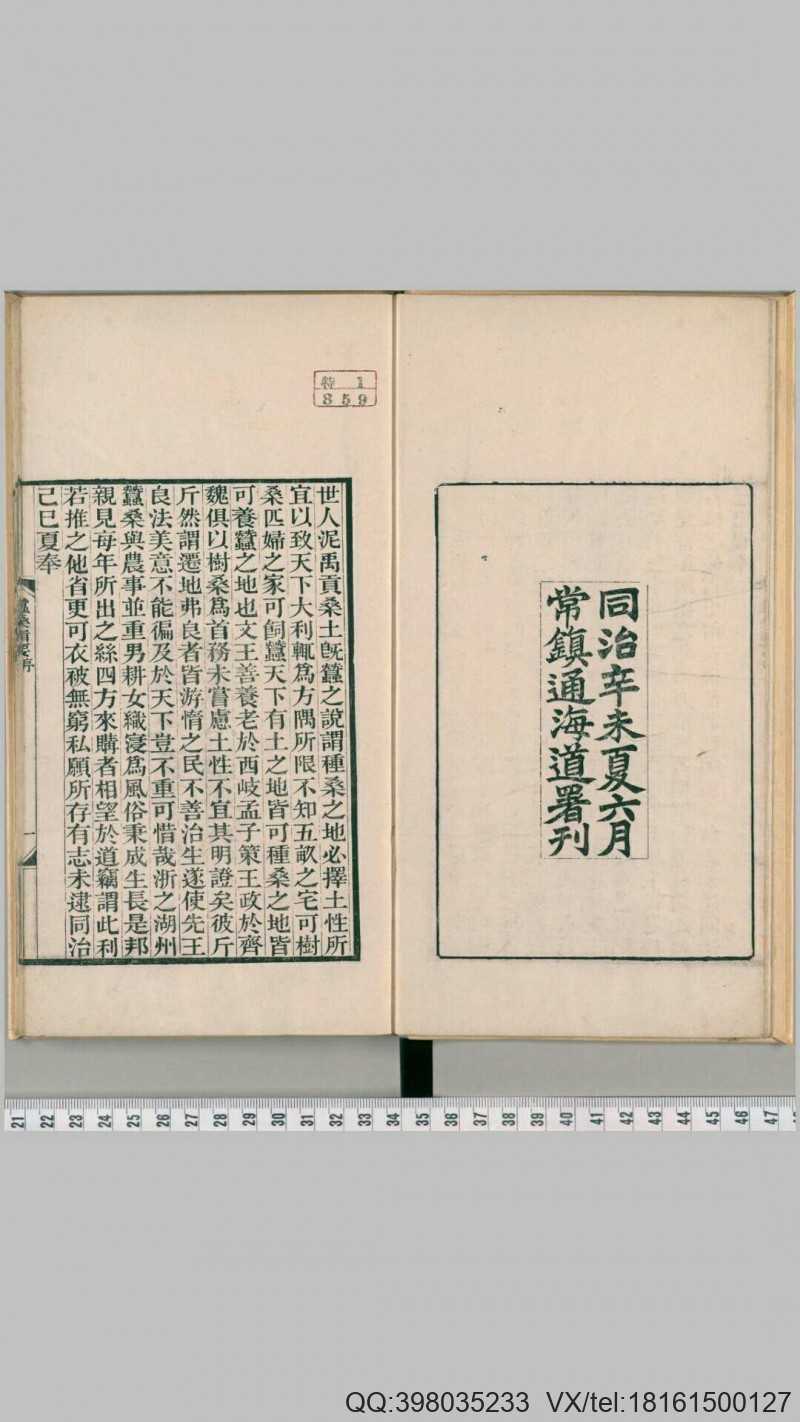 同治辛未夏六月
常鎮通海道署刊
特 1
859
世人泥禹貢桑土旣蠶之說謂種桑之地必擇土性所
宜以致天下大利輒爲方隅所限不知五畝之宅可樹
桑匹婦之家可飼蠶天下有土之地皆可種桑之地皆
可養蠶之地也文王善養老於西岐孟子策王政於齊
魏俱以樹桑爲首務未嘗慮土性不宜其明證矣彼斤
斤然謂遷地弗良者皆游惰之民不善治生遂使先王
良法美意不能徧及於天下豈不重可惜哉浙之湖州
蠶桑與農事並重男耕女織寖爲風俗秉成生長是邦
親見每年所出之絲四方來購者相望於道竊謂此利
若推之他省更可衣被無窮私願所存有志未逮同治
己巳夏奉
一
21 22 23 24 25 26 27 28 29 30 31 32 33 34 35 36 37 38 39 40 41 42 43 44 45 46 47
QQ:398035233 VX/tel:18161500127